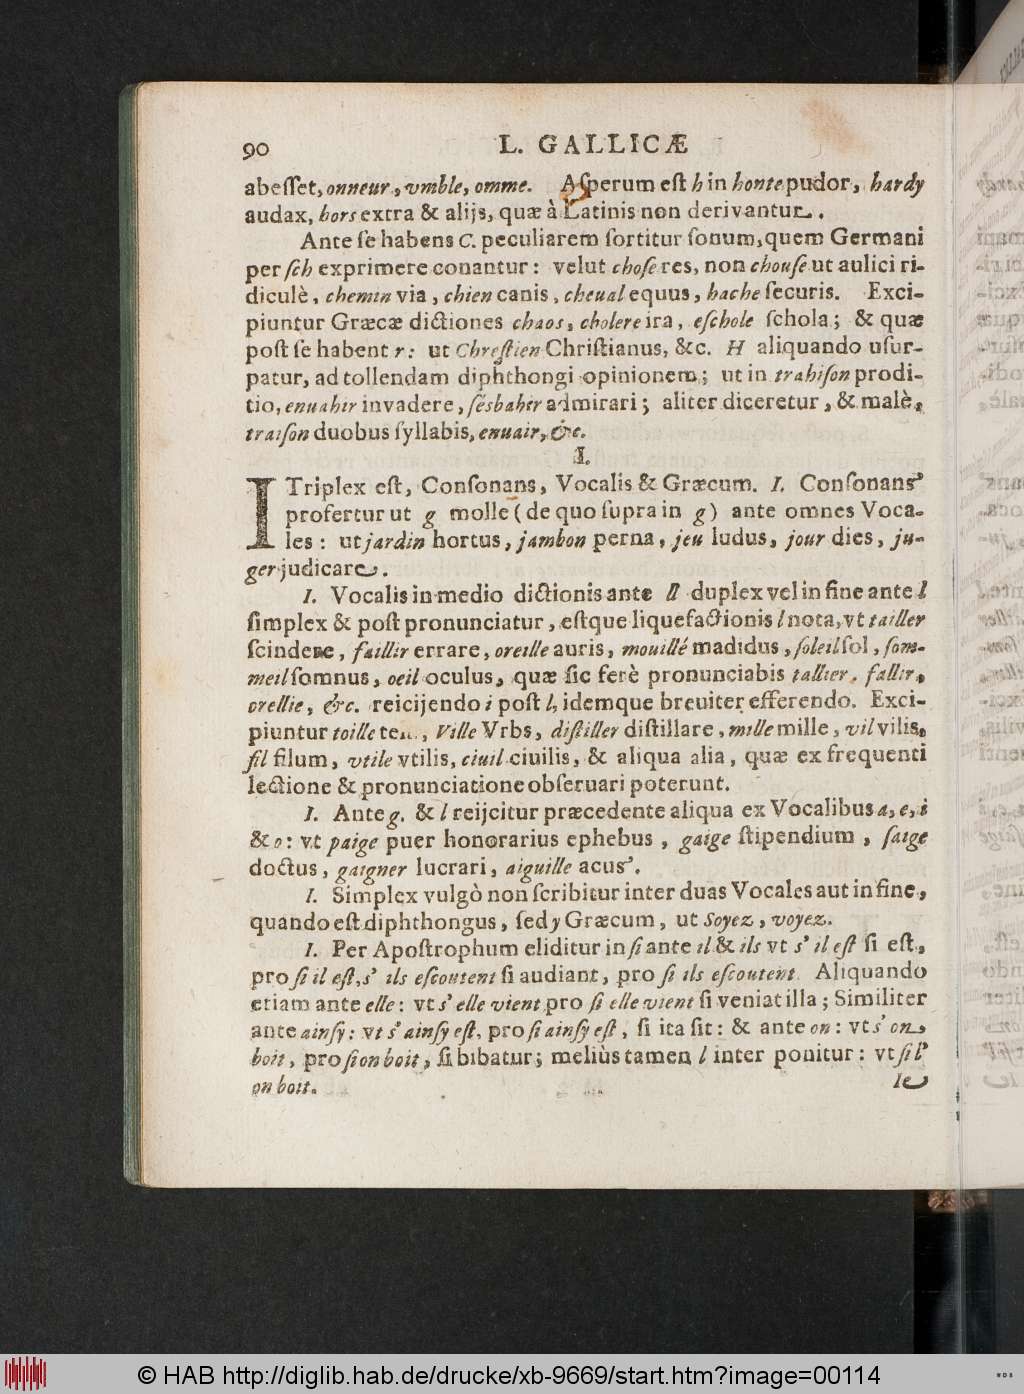 90 L. GALLICÆ
abeſſet, onneur, vmble, omme. Aſperum eſt h in honte pudor, hardy
audax, hors extra & alijs, quæ à Latinis non derivantur.
Ante ſe habens C. peculiarem ſortitur ſonum, quem Germani
per ſch exprimere conantur: velut choſe res, non chouſe ut aulici ri-
diculè, chemin via, chien canis, cheual equus, hache ſecuris. Exci-
piuntur Græcæ dictiones chaos, cholere ira, eſchole ſchola; & quæ
poſt ſe habent r: ut Chreſtien Chriſtianus, &c. H aliquando uſur-
patur, ad tollendam diphthongi opinionem; ut in trahiſon prodi-
tio, enuahir invadere, ſésbahir admirari; aliter diceretur, & malè,
traiſon duobus ſyllabis, enuair, &c.
I.
I Triplex eſt, Conſonans, Vocalis & Græcum. I. Conſonans
profertur ut g molle (de quo ſupra in g) ante omnes Voca-
les: ut jardin hortus, jambon perna, jeu ludus, jour dies, ju-
ger judicare.
I. Vocalis in medio dictionis ante ll duplex vel in fine ante l
ſimplex & poſt pronunciatur, eſtque liquefactionis l nota, vt tailler
ſcindere, faillir errare, oreille auris, mouillé madidus, ſoleil ſol, ſom-
meil ſomnus, oeil oculus, quæ ſic ferè pronunciabis tallier, fallir,
orellie, &c. reicijendo i poſt l, idemque breuiter efferendo. Exci-
piuntur toille, Ville Vrbs, diſtiller diſtillare, mille mille, vil vilis,
fil filum, vtile vtilis, ciuil ciuilis, & aliqua alia, quæ ex frequenti
lectione & pronunciatione obſeruari poterunt.
I. Ante g. & l reijcitur præcedente aliqua ex Vocalibus a, e, i
& o: vt paige puer honorarius ephebus, gaige ſtipendium, ſaige
doctus, gaigner lucrari, aiguille acus.
I. Simplex vulgò non ſcribitur inter duas Vocales aut in fine,
quando eſt diphthongus, ſed y Græcum, ut Soyez, voyez.
I. Per Apoſtrophum eliditur in ſi ante il & ils vt s' il eſt ſi eſt,
pro ſi il eſt, s' ils eſcoutent ſi audiant, pro ſi ils eſcoutent. Aliquando
etiam ante elle: vt s' elle vient pro ſi elle vient ſi veniat illa; Similiter
ante ainſy: vt s' ainſy eſt, pro ſi ainſy eſt, ſi ita ſit: & ante on: vt s' on
boit, pro ſi on boit, ſi bibatur; meliùs tamen l inter ponitur: vt ſi l'
on boit.
le
© HAB http://diglib.hab.de/drucke/xb-9669/start.htm?image=00114